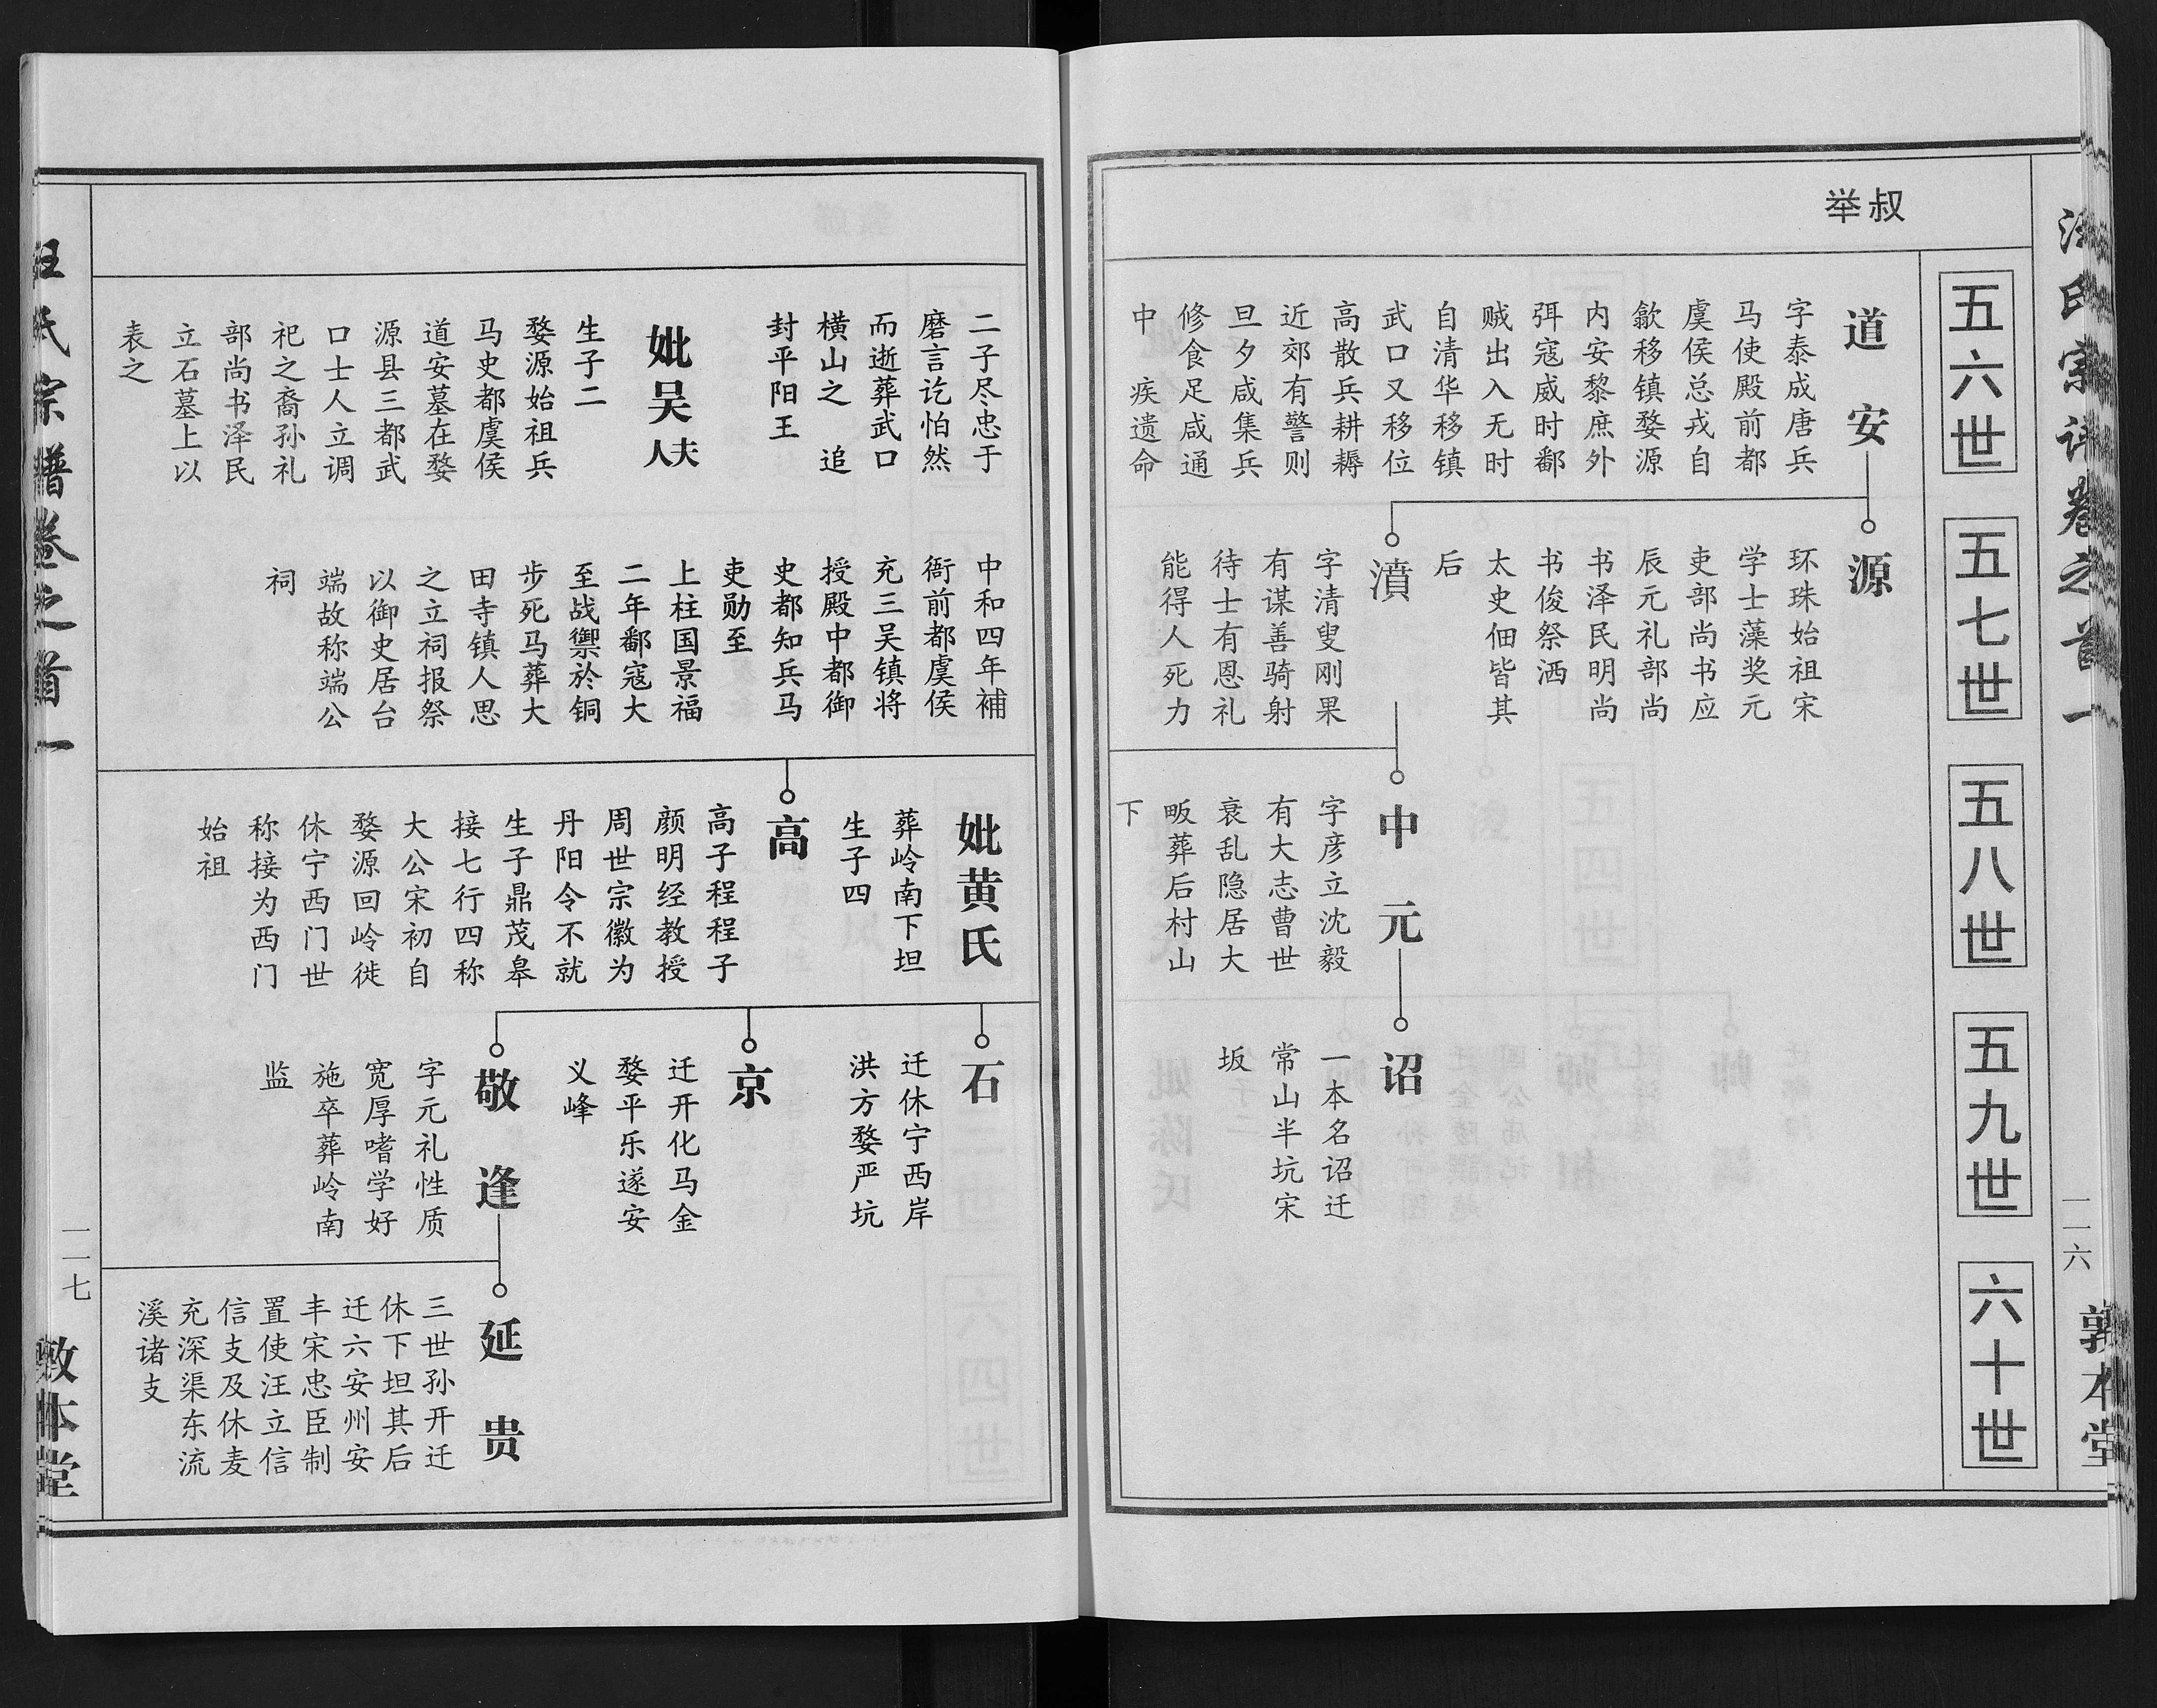 汪氏宗谱卷之首一
一一六
敦本堂
叔举
五六世
五七世
五八世
五九世
六十世
道安
字泰成唐兵
马使殿前都
虞侯总戎自
歙移镇婺源
内安黎庶外
弭寇威时鄱
贼出入无时
自清华移镇
武口又移位
高散兵耕耨
近郊有警则
旦夕咸集兵
修食足咸通
中 疾遗命
源
环珠始祖宋
学士藻奖元
吏部尚书应
辰元礼部尚
书泽民明尚
书俊祭酒
太史佃皆其
后
濆
字清叟刚果
有谋善骑射
待士有恩礼
能得人死力
中元
字彦立沈毅
有大志曹世
衰乱隐居大
畈葬后村山
下
诏
一本名诏迁
常山半坑宋
坂
二子尽忠于
磨言讫怡然
而逝葬武口
横山之 追
封平阳王
妣吴夫人
生子二
婺源始祖兵
马史都虞侯
道安墓在婺
源县三都武
口士人立调
祀之裔孙礼
部尚书泽民
立石墓上以
表之
中和四年補
衙前都虞侯
充三吴镇将
授殿中都御
史都知兵马
吏勋至
上柱国景福
二年鄱寇大
至战禦於铜
步死马葬大
田寺镇人思
之立祠报祭
以御史居台
端故称端公
祠
妣黄氏
葬岭南下坦
生子四
高
高子程程子
颜明经教授
周世宗徽为
丹阳令不就
生子鼎茂皋
接七行四称
大公宋初自
婺源回岭徙
休宁西门世
称接为西门
始祖
石
迁休宁西岸
洪方婺严坑
京
迁开化马金
婺平乐遂安
义峰
敬逢
字元礼性质
宽厚嗜学好
施卒葬岭南
监
延贵
三世孙开迁
休下坦其后
迁六安州安
丰宋忠臣制
置使汪立信
信支及休麦
充深渠东流
溪诸支
汪氏宗谱卷之首一
一一七
敦本堂